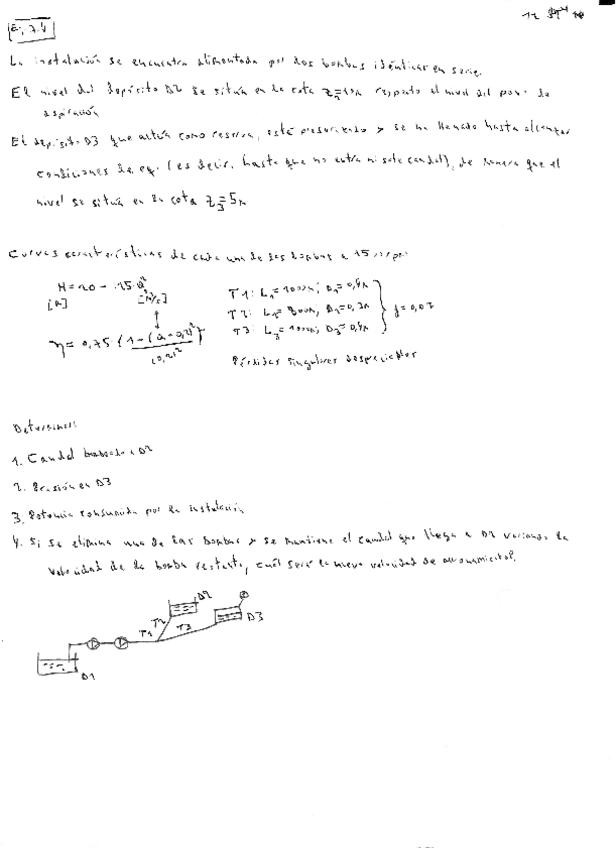 Ej. 7.4
La instalación se encuentra alimentada por dos bombas idénticas en serie.
El nivel del depósito D2 se sitúa en la cota Z₂=10m respecto al nivel del pozo de
aspiración
El depósito D3 que actúa como reserva, está presurizado y se ha llenado hasta alcanzar
condiciones de eq. (es decir, hasta que no entra ni sale caudal), de manera que el
nivel se sitúa en la cota Z₃=5m
Curvas características de cada una de las bombas a 15 rpm:
H=20 - 15 Q²
[m] [m³/s]
η = 0,75 {1-(Q-0,2)²/(0,2)²}
T1: L₁=1000m; D₁=0,4m
T2: L₂=800m, D₂=0,3m
T3: L₃=1000m; D₃=0,4m
f=0,02
Pérdidas singulares despreciables
Determinar:
1. Caudal bombeado a D2
2. Presión en D3
3. Potencia consumida por la instalación
4. Si se elimina una de las bombas y se mantiene el caudal que llega a D2 variando la
velocidad de la bomba restante, cuál será la nueva velocidad de accionamiento?
T1 T2 D2 T3 D3
D1